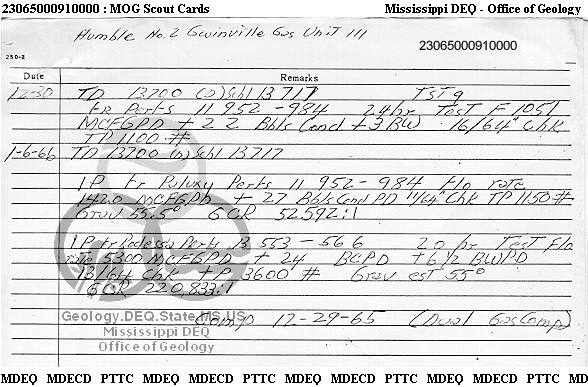 23065000910000 : MOG Scout Cards Mississippi DEQ - Office of Geology
Humble No. 2 Gwinville Gas Unit 111
23065000910000
230-2
Date Remarks
12-30 TD 13700 (D) Schl 13717 Tstg
Fr Perfs 11 952-984 24 hr Test F 1051
MCFGPD + 22 Bbls Cond + 3 BW 16/64" Chk
TP 1100 #
1-6-66 TD 13700 (D) Schl 13717
IP fr Paluxy Perfs 11 952-984 Flo rate
1420 MCFGPD + 27 Bbls Cond PD 11/64" Chk TP 1150 #
Grav 55.5° GCR 52.592:1
IP fr Rodessa Perfs 13 553-566 20 hr Test Flo
rate 5300 MCFGPD + 24 BCPD + 6 1/2 BWPD
13/64 Chk TP 3600 # Grav est 55°
GCR 220.833:1
Geology.DEQ.State.MS.US
Comp 12-29-65 (Dual Gas Comp)
Mississippi DEQ
Office of Geology
MDEQ MDECD PTTC MDEQ MDECD PTTC MDEQ MDECD PTTC MDEQ MDECD PTTC MDEQ